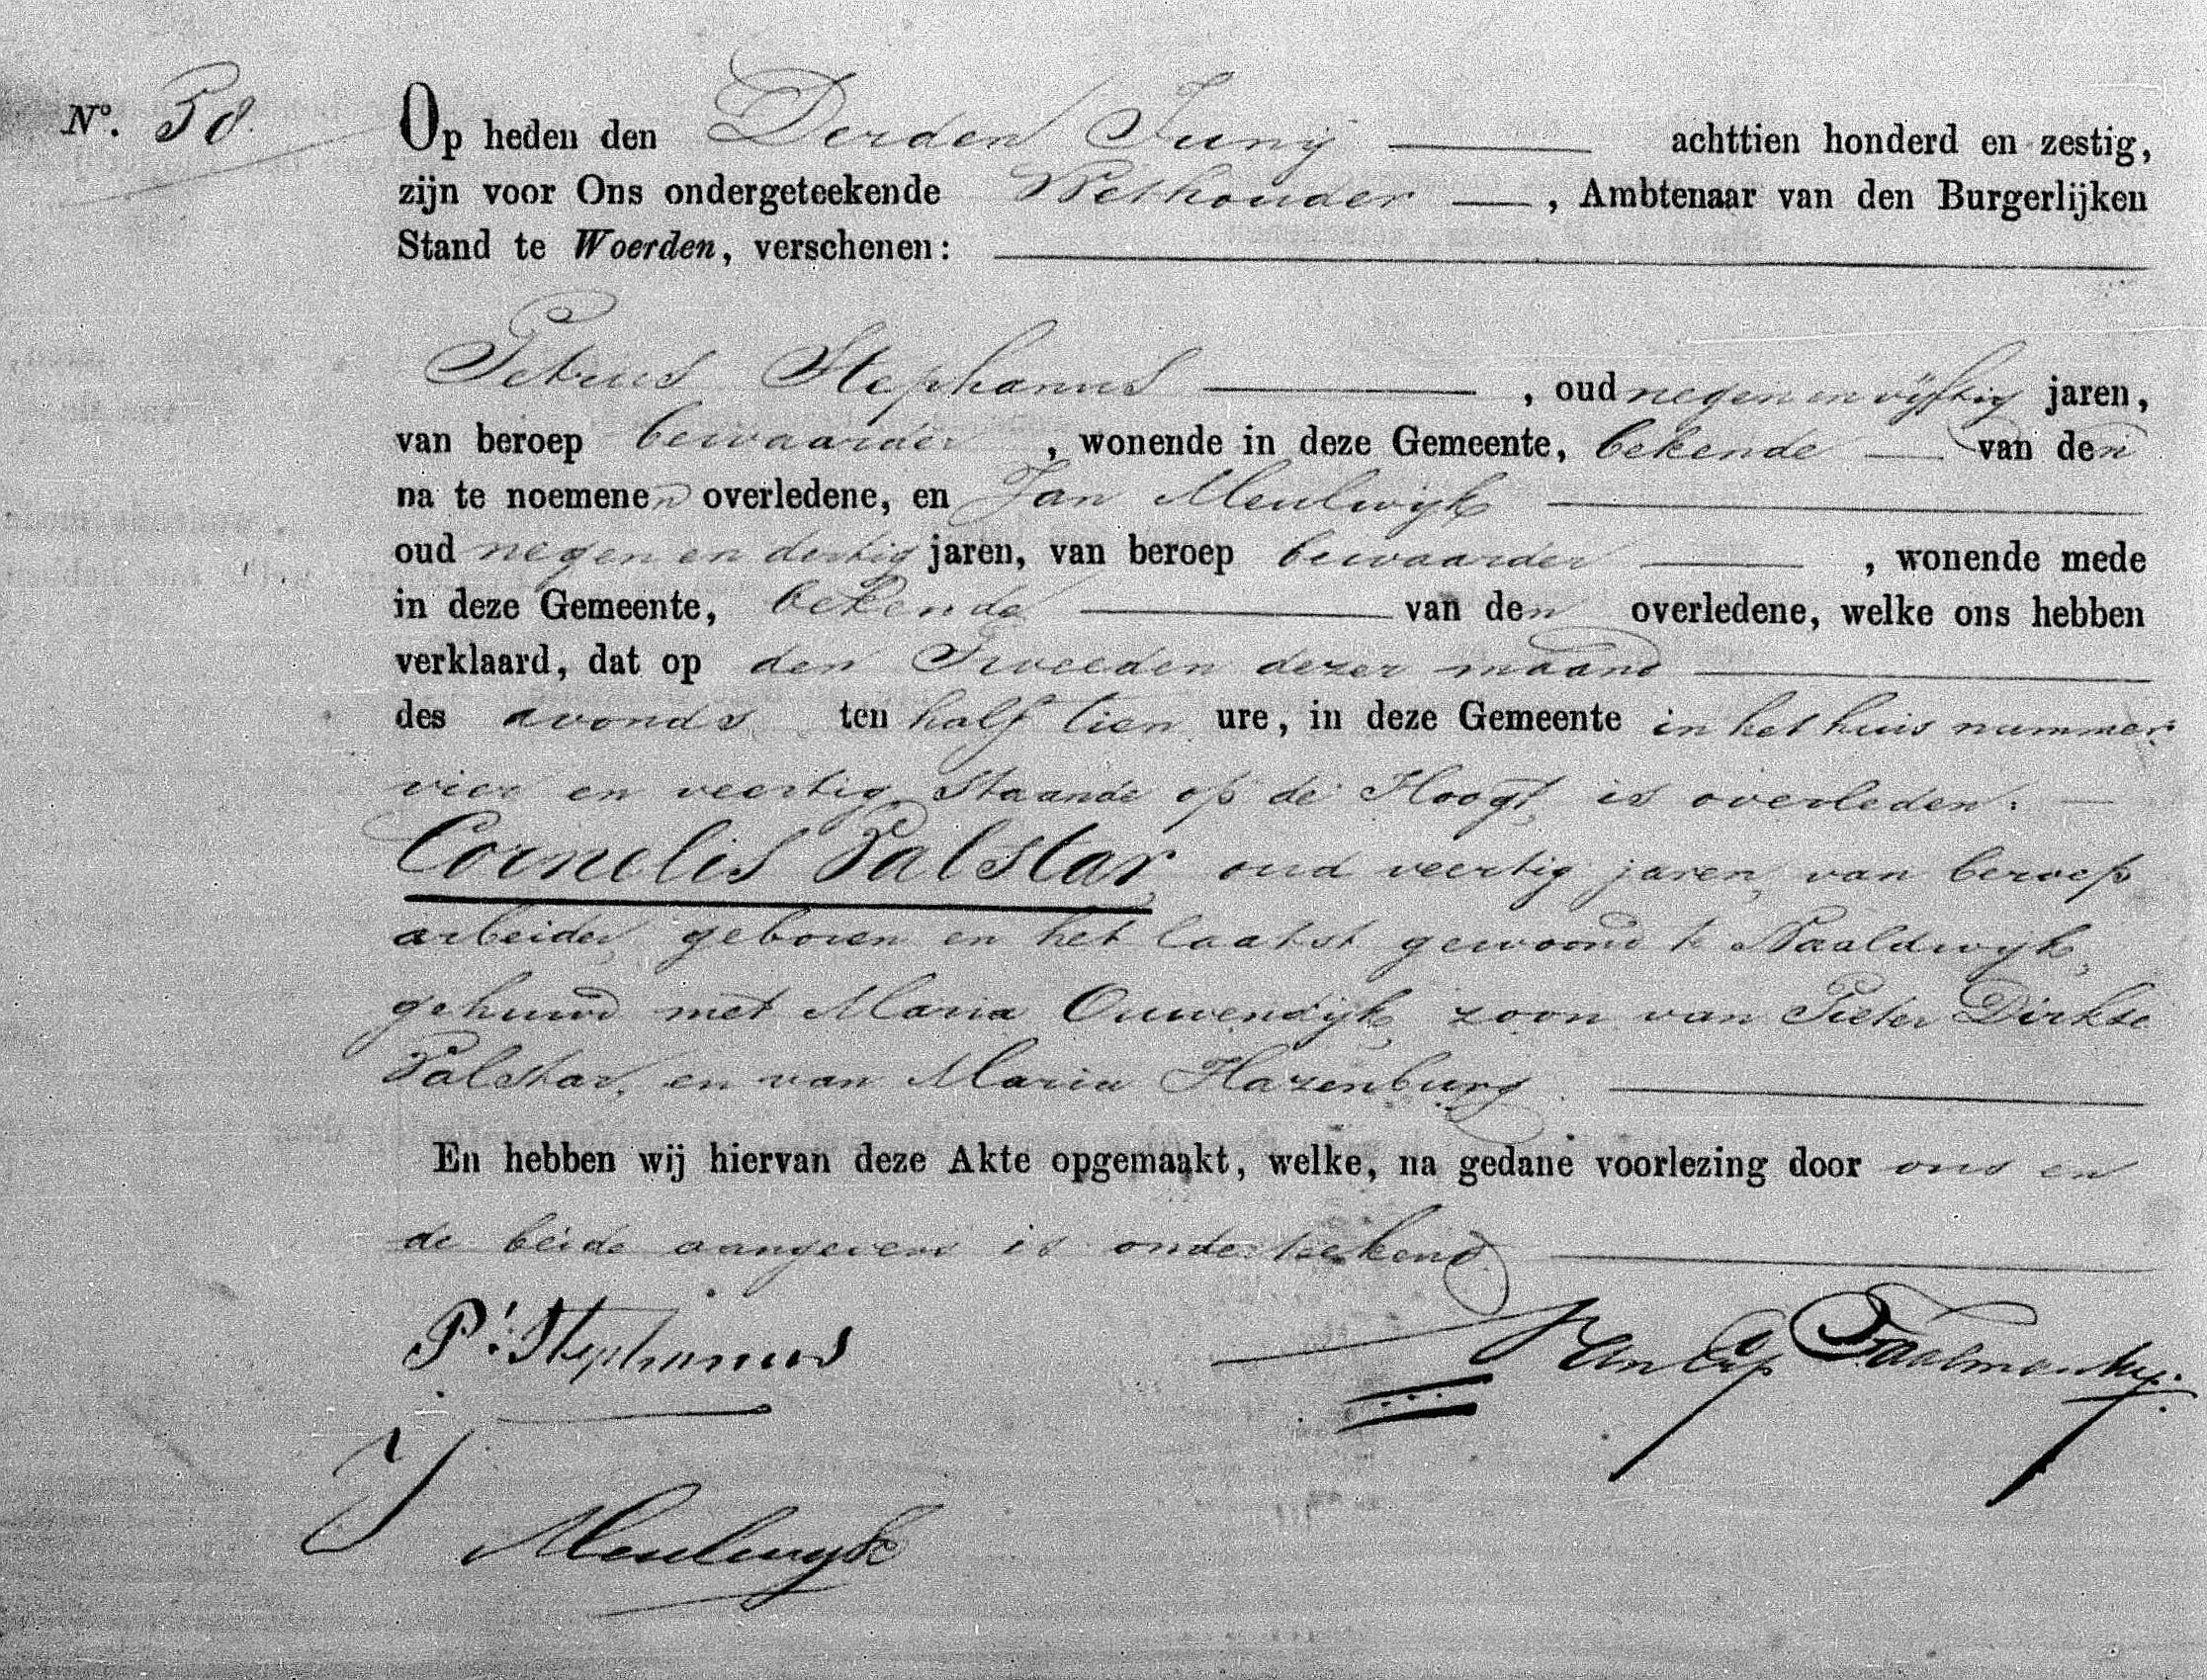 No. 58.
Op heden den Derden Junij achttien honderd en zestig,
zijn voor Ons ondergeteekende Wethouder, Ambtenaar van den Burgerlijken
Stand te Woerden, verschenen:
Petrus Stephanus, oud negen en vijftig jaren,
van beroep bewaarder, wonende in deze Gemeente, bekende van den
na te noemenen overledene, en Jan Meulwijk
oud negen en dertig jaren, van beroep bewaarder, wonende mede
in deze Gemeente, bekende van den overledene, welke ons hebben
verklaard, dat op den Tweeden dezer maand
des avonds ten half tien ure, in deze Gemeente in het huis nummer
vier en veertig staande op de Hoogt, is overleden:
Cornelis Palstar, oud veertig jaren, van beroep
arbeider, geboren en het laatst gewoond te Naaldwijk,
gehuwd met Maria Ouwendijk, zoon van Pieter Dirkse
Palstar, en van Maria Hazenburg.
En hebben wij hiervan deze Akte opgemaakt, welke, na gedane voorlezing door ons en
de beide aangevers is onderteekend.
P. Stephanus
J Meulwijk